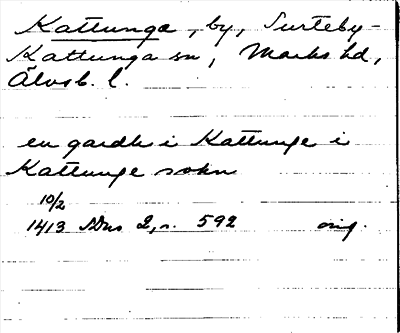 Kattunga, by, Surteby-
Kattunga sn, Marks hd,
Älvsb. l.
en gardh i Kattunge i
Kattunge sokn
10/2
1413 SDns 2, n. 592 orig.